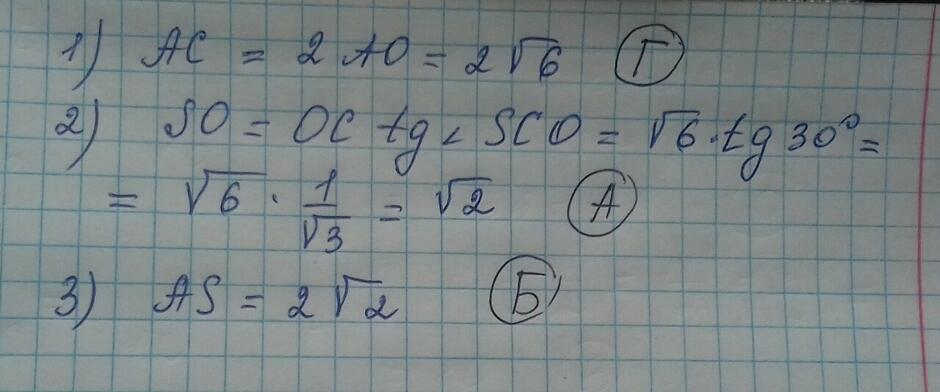 1) AC = 2 AO = 2√6 Г
2) SO = OC tg < SCO = √6 · tg 30° =
= √6 · 1/√3 = √2 А
3) AS = 2√2 Б